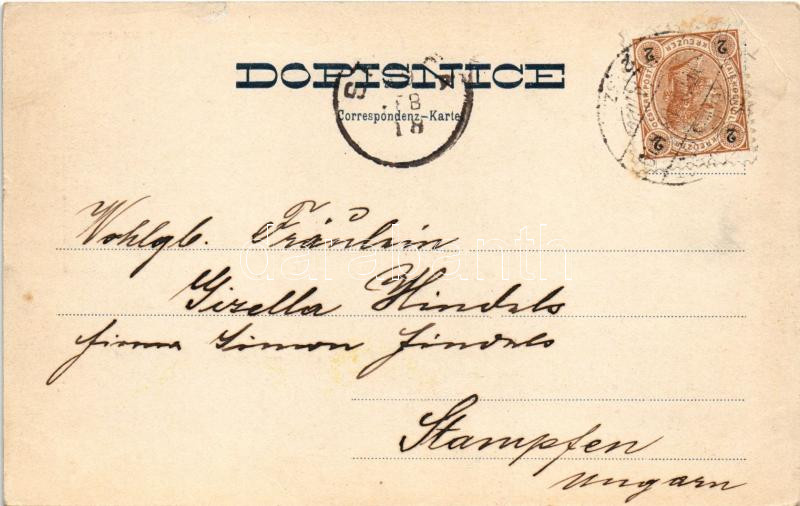 DOPISNICE
Correspondenz-Karte
2 KREUZER 2
2 2
18
Wohlgb. Fräulein
darabanth
Gizella Hindels
firma Simon Hindels
Stampfen
Ungarn